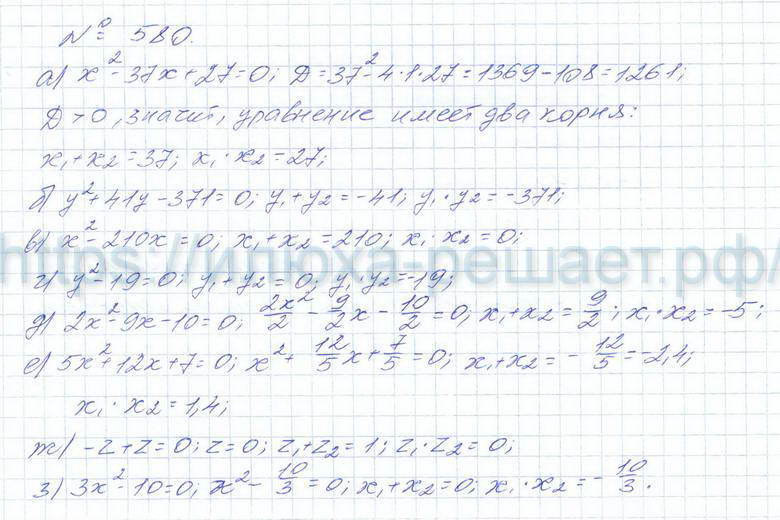 № 580.
а) x²-37x+27=0; D=37²-4·1·27=1369-108=1261;
D>0, значит, уравнение имеет два корня:
x₁+x₂=37; x₁·x₂=27;
б) y²+41y-371=0; y₁+y₂=-41; y₁·y₂=-371;
в) x²-210x=0; x₁+x₂=210; x₁·x₂=0;
https://илюха-решает.рф/
г) y²-19=0; y₁+y₂=0; y₁·y₂=-19;
д) 2x²-9x-10=0; 2x²/2 - 9/2x - 10/2=0; x₁+x₂=9/2; x₁·x₂=-5;
е) 5x²+12x+7=0; x²+12/5x+7/5=0; x₁+x₂=-12/5=-2,4;
x₁·x₂=1,4;
ж) -z+z=0; z=0; z₁+z₂=1; z₁·z₂=0;
з) 3x²-10=0; x²-10/3=0; x₁+x₂=0; x₁·x₂=-10/3.